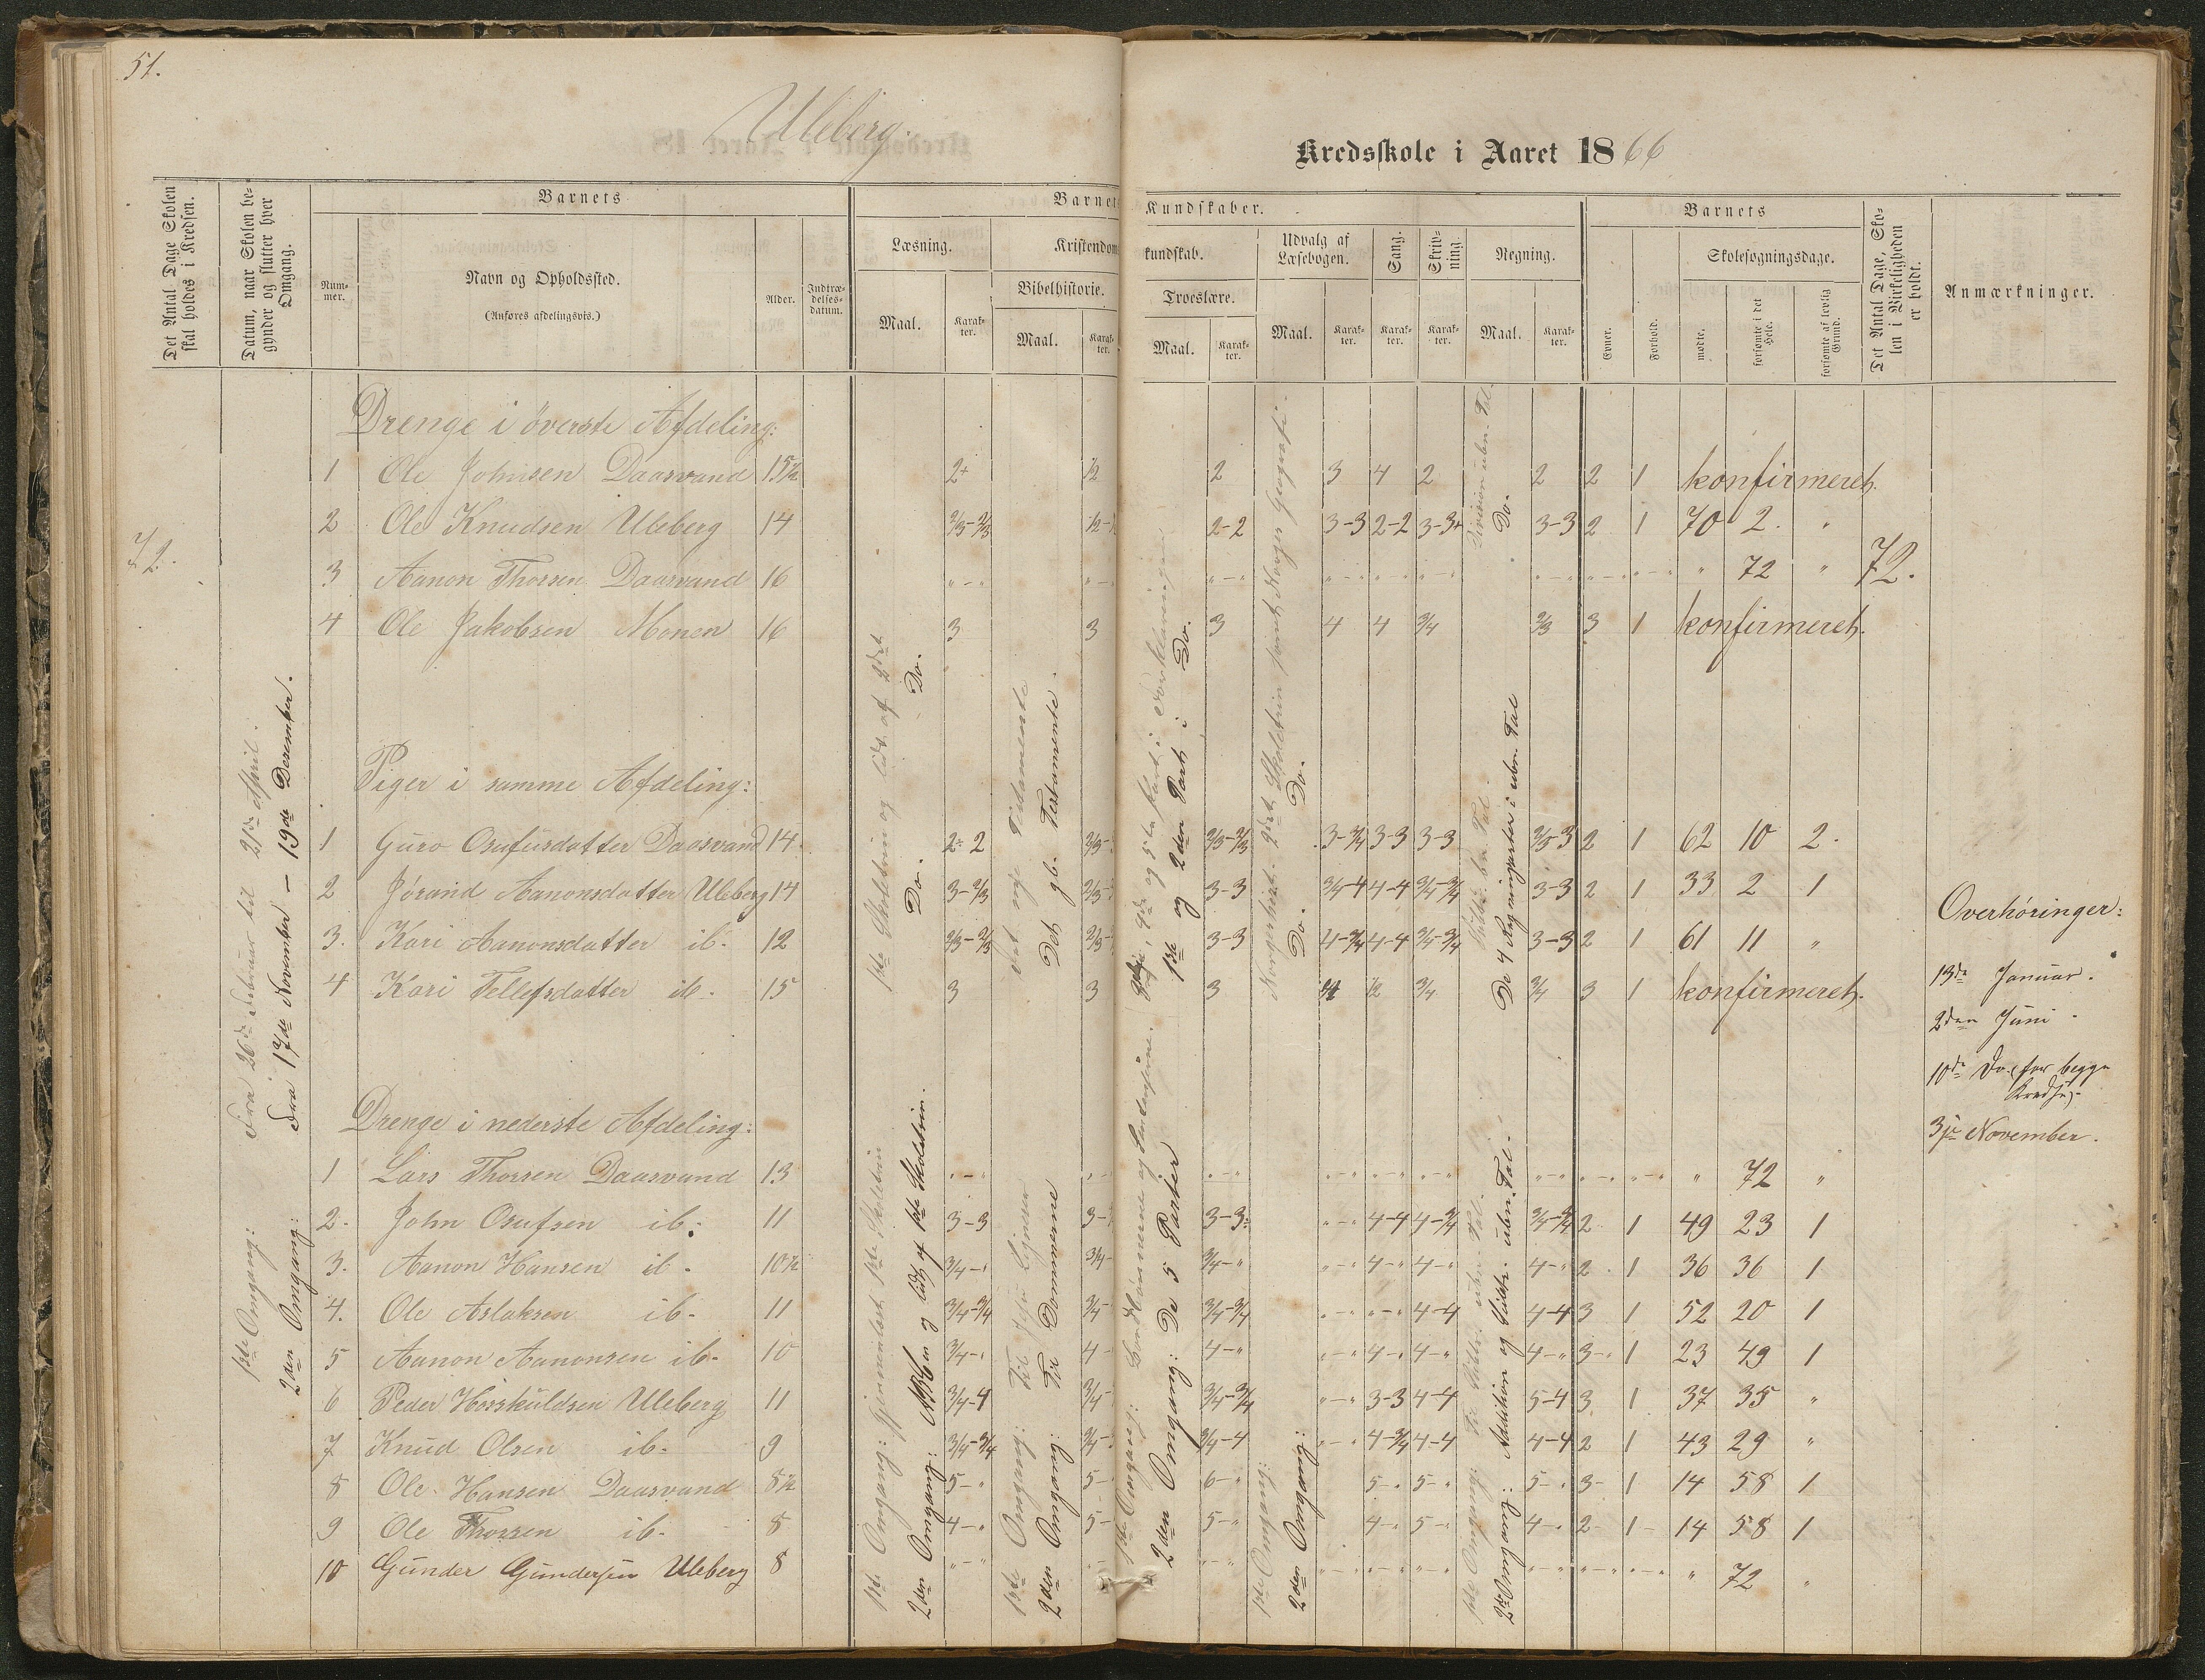 51.
Uleberg.
Kredsskole i Aaret 1866
Det Antal Dage Skolen skal holdes i Kredsen.
Datum, naar Skolen begynder og slutter hver Omgang.
Barnets
Nummer.
Navn og Opholdssted.
(Anføres afdelingsvis.)
Alder.
Indtrædelsesdatum.
Læsning.
Maal.
Karakter.
Barnets
Kristendoms
Bibelhistorie.
Maal.
Karakter.
Kundskaber.
kundskab.
Troeslære.
Maal.
Karakter.
Udvalg af Læsebogen.
Maal.
Karakter.
Sang.
Karakter.
Skrivning.
Karakter.
Regning.
Maal.
Karakter.
Barnets
Evner.
Forhold.
Skolesøgningsdage.
mødte.
forsømte i det Hele.
forsømte af lovlig Grund.
Det Antal Dage, Skolen i Virkeligheden er holdt.
Anmærkninger.
72.
1ste Omgang: Fra 26de Februar til 21de April.
2den Omgang: Fra 17de November – 19de December.
Drenge i överste Afdeling:
1 Ole Johnsen Daasvand 15½ 2+ ½ 2 3 4 2 2 2 1 konfirmeret.
2 Ole Knudsen Uleberg 14 2/3-2/3 2-2 3-3 2-2 3-3+ 3-3 2 1 70 2. "
3 Aanon Thorsen Daasvand 16 " 72 " 72.
4 Ole Jakobsen Monen 16 3 3 3 4 4 3/4 2/3 3 1 konfirmeret.
Piger i samme Afdeling:
1 Guro Osufusdatter Daasvand 14. 2-2 2/3-2/3 3-3/4 3-3 3-3 2/3-3 2 1 62 10 2.
2 Jórand Aanonsdatter Uleberg 14 3-2/3 3-3 3/4-4 4-4 3/4-3/4 3-3 2 1 33 2 1
3. Kari Aanonsdatter ib. 12 2/3-2/3 3-3 4-3/4 4-4 3/4-3/4 3-3 2 1 61 11 "
4 Kari Tellefsdatter ib. 15 3 3 3 3/4 3/4 3 1 konfirmeret.
Drenge i nederste Afdeling:
1 Lars Thorsen Daasvand 13 " 72 "
2. John Osufsen ib. 11 3-3 3-3 4-4 4-3/4 3/4-3/4 2 1 49 23 1
3. Aanon Hansen ib. 10½ 3/4-" 3/4-" 4-" 4-" 4-" 2. 1 36 36 1
4. Ole Aslaksen ib. 11 3/4-3/4 3/4-3/4 4-4 4-4 3 1 52 20 1
5 Aanon Aanonsen ib. 10 3/4-" 4-" 4-" 4-" 4-" 3-" 1 23 49 1
6 Peder Horskuldsen Uleberg 11 3/4-4 3/4-3/4 3-3 4-4 5-4 3 1 37 35 "
7 Knud Olsen ib. 9 3/4-3/4 3/4-4 4-3/4 4-4 4-4 2 1 43 29 "
8 Ole Hansen Daasvand 8½ 5-" 5- 6-" 5-" 5-" 5-" 3- 1 14 58 1
9 Ole Thorsen ib. 8 4-" 5- 5-" 4-" 5-" 4-" 2- 1- 14 58 1
10 Gunder Gundersen Uleberg 8 " 72 "
1ste Skoletrin og lidt af 2det
Do. Do.
1ste Omgang: gjennemlæst 1ste Skoletrin
2den Omgang: ABCen og lidt af 1ste Skoletrin.
Det nye Testamente
Det gl. Testamente.
1ste Omgang: Til Jesu Lignelser
2den Omgang: Til Dommerne
3die, 4de og 5te Part i Forklaringen
1ste og 2den Part i Do.
1ste Omgang:
2den Omgang: De 5 Parter
Norgeshist. 2det Skoletrin samt Norges Geografi.
Do. Do.
1ste Omgang:
2den Omgang:
Division ubn. Tal.
Do.
De 4 Regningsarter i ubn. Tal
1ste Omgang: ubn. Tal.
2den Omgang: Addition og Subtr. ubn. Tal.
Overhöringer:
13de Januar.
2den Juni.
10de Do. (for begge Kredse).
3die November.